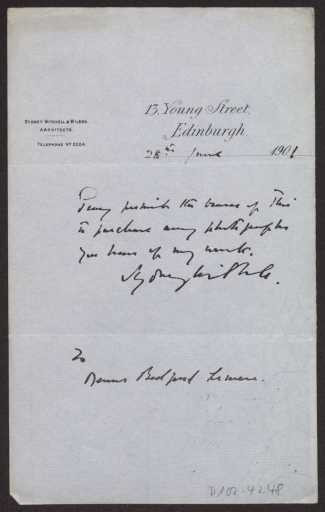 SYDNEY MITCHELL & WILSON,
ARCHITECTS.
TELEPHONE Nº 2204.
13, Young Street,
Edinburgh,
28th June 1901
Pray permit the bearer of this
to purchase any photographs
you have of my work.
Sydney Mitchell.
To
Bedford Lemere.
D102-4248